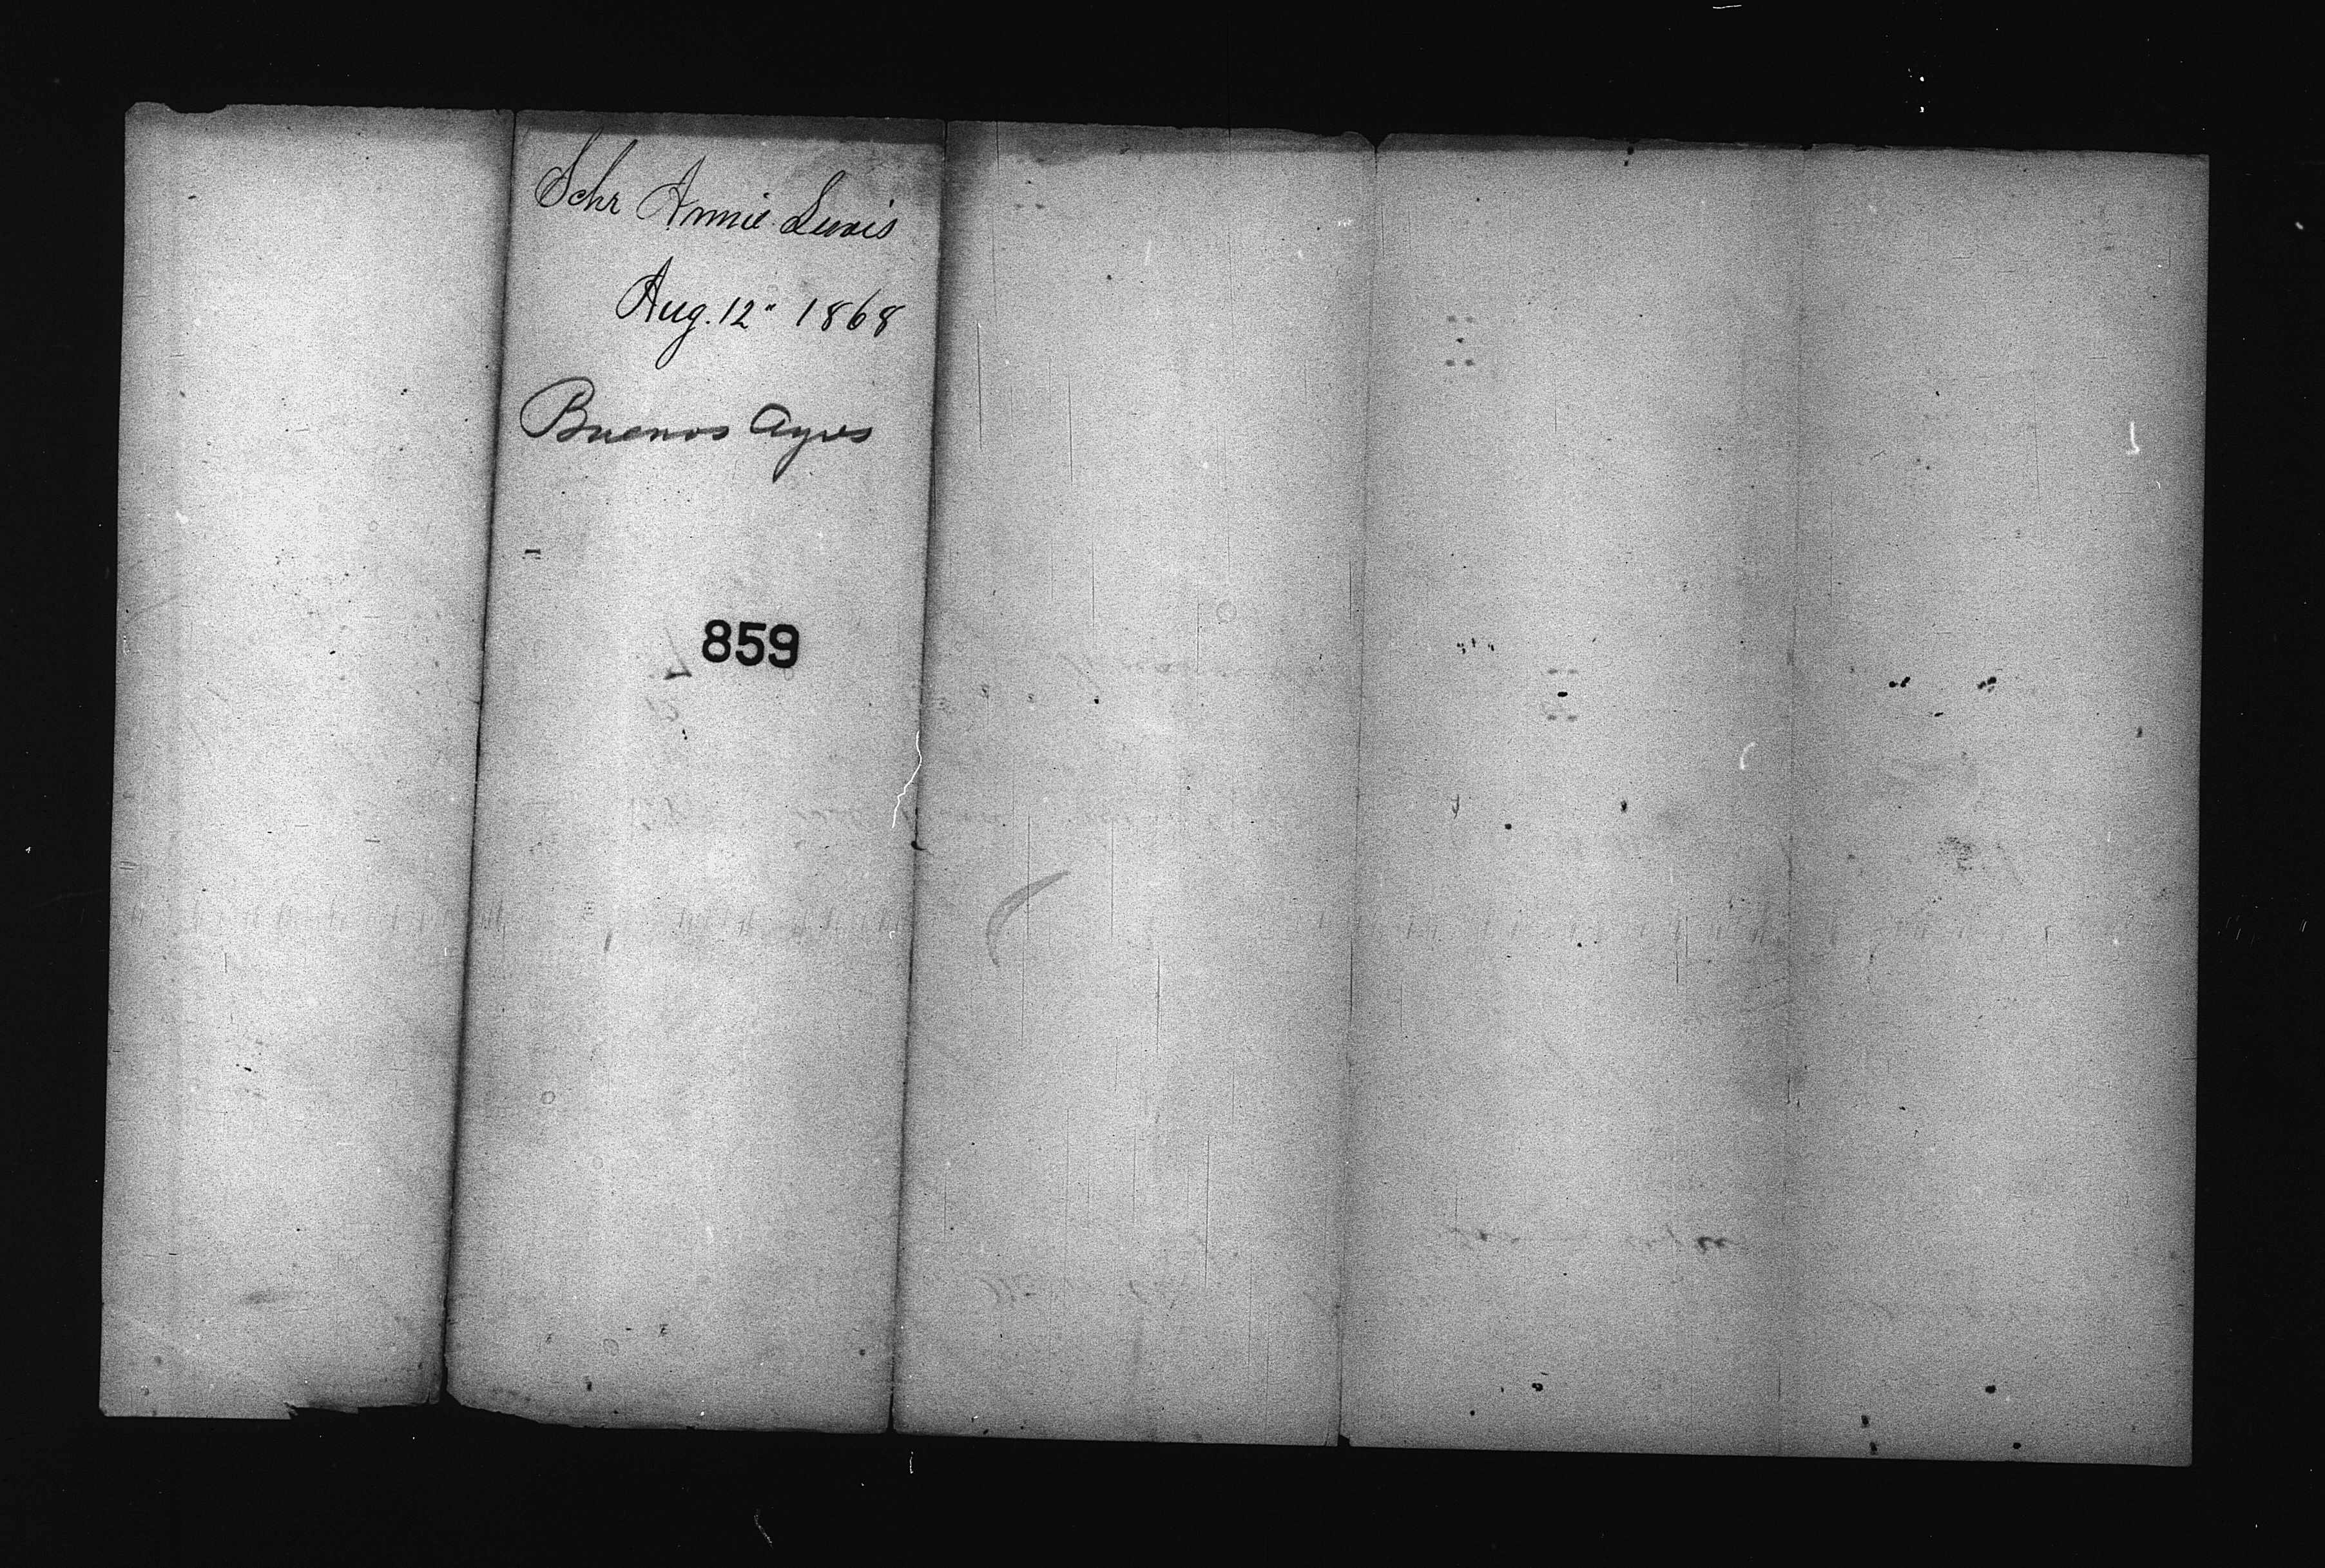 Schr Annie Lewis
Aug. 12" 1868
Buenos Ayres
859